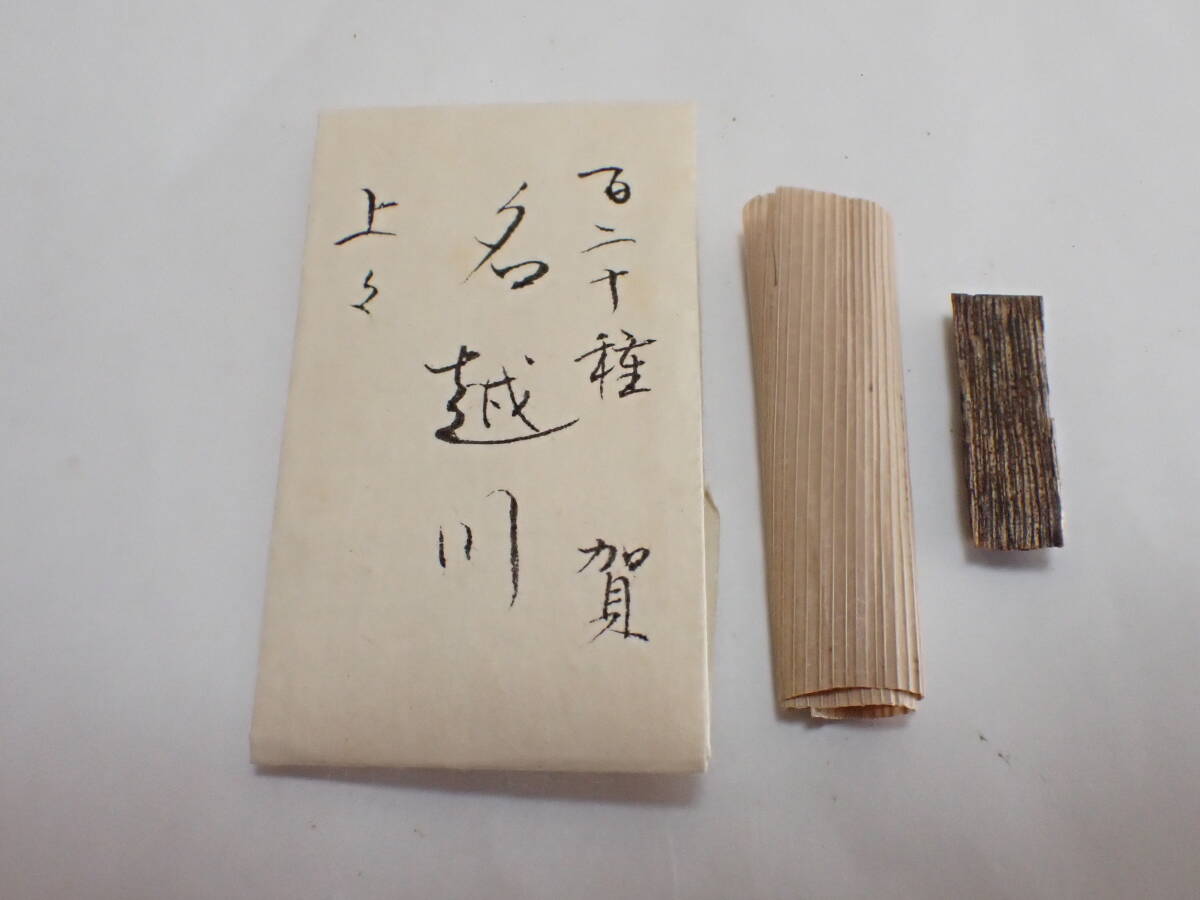 百二十種 賀
名越川
上々